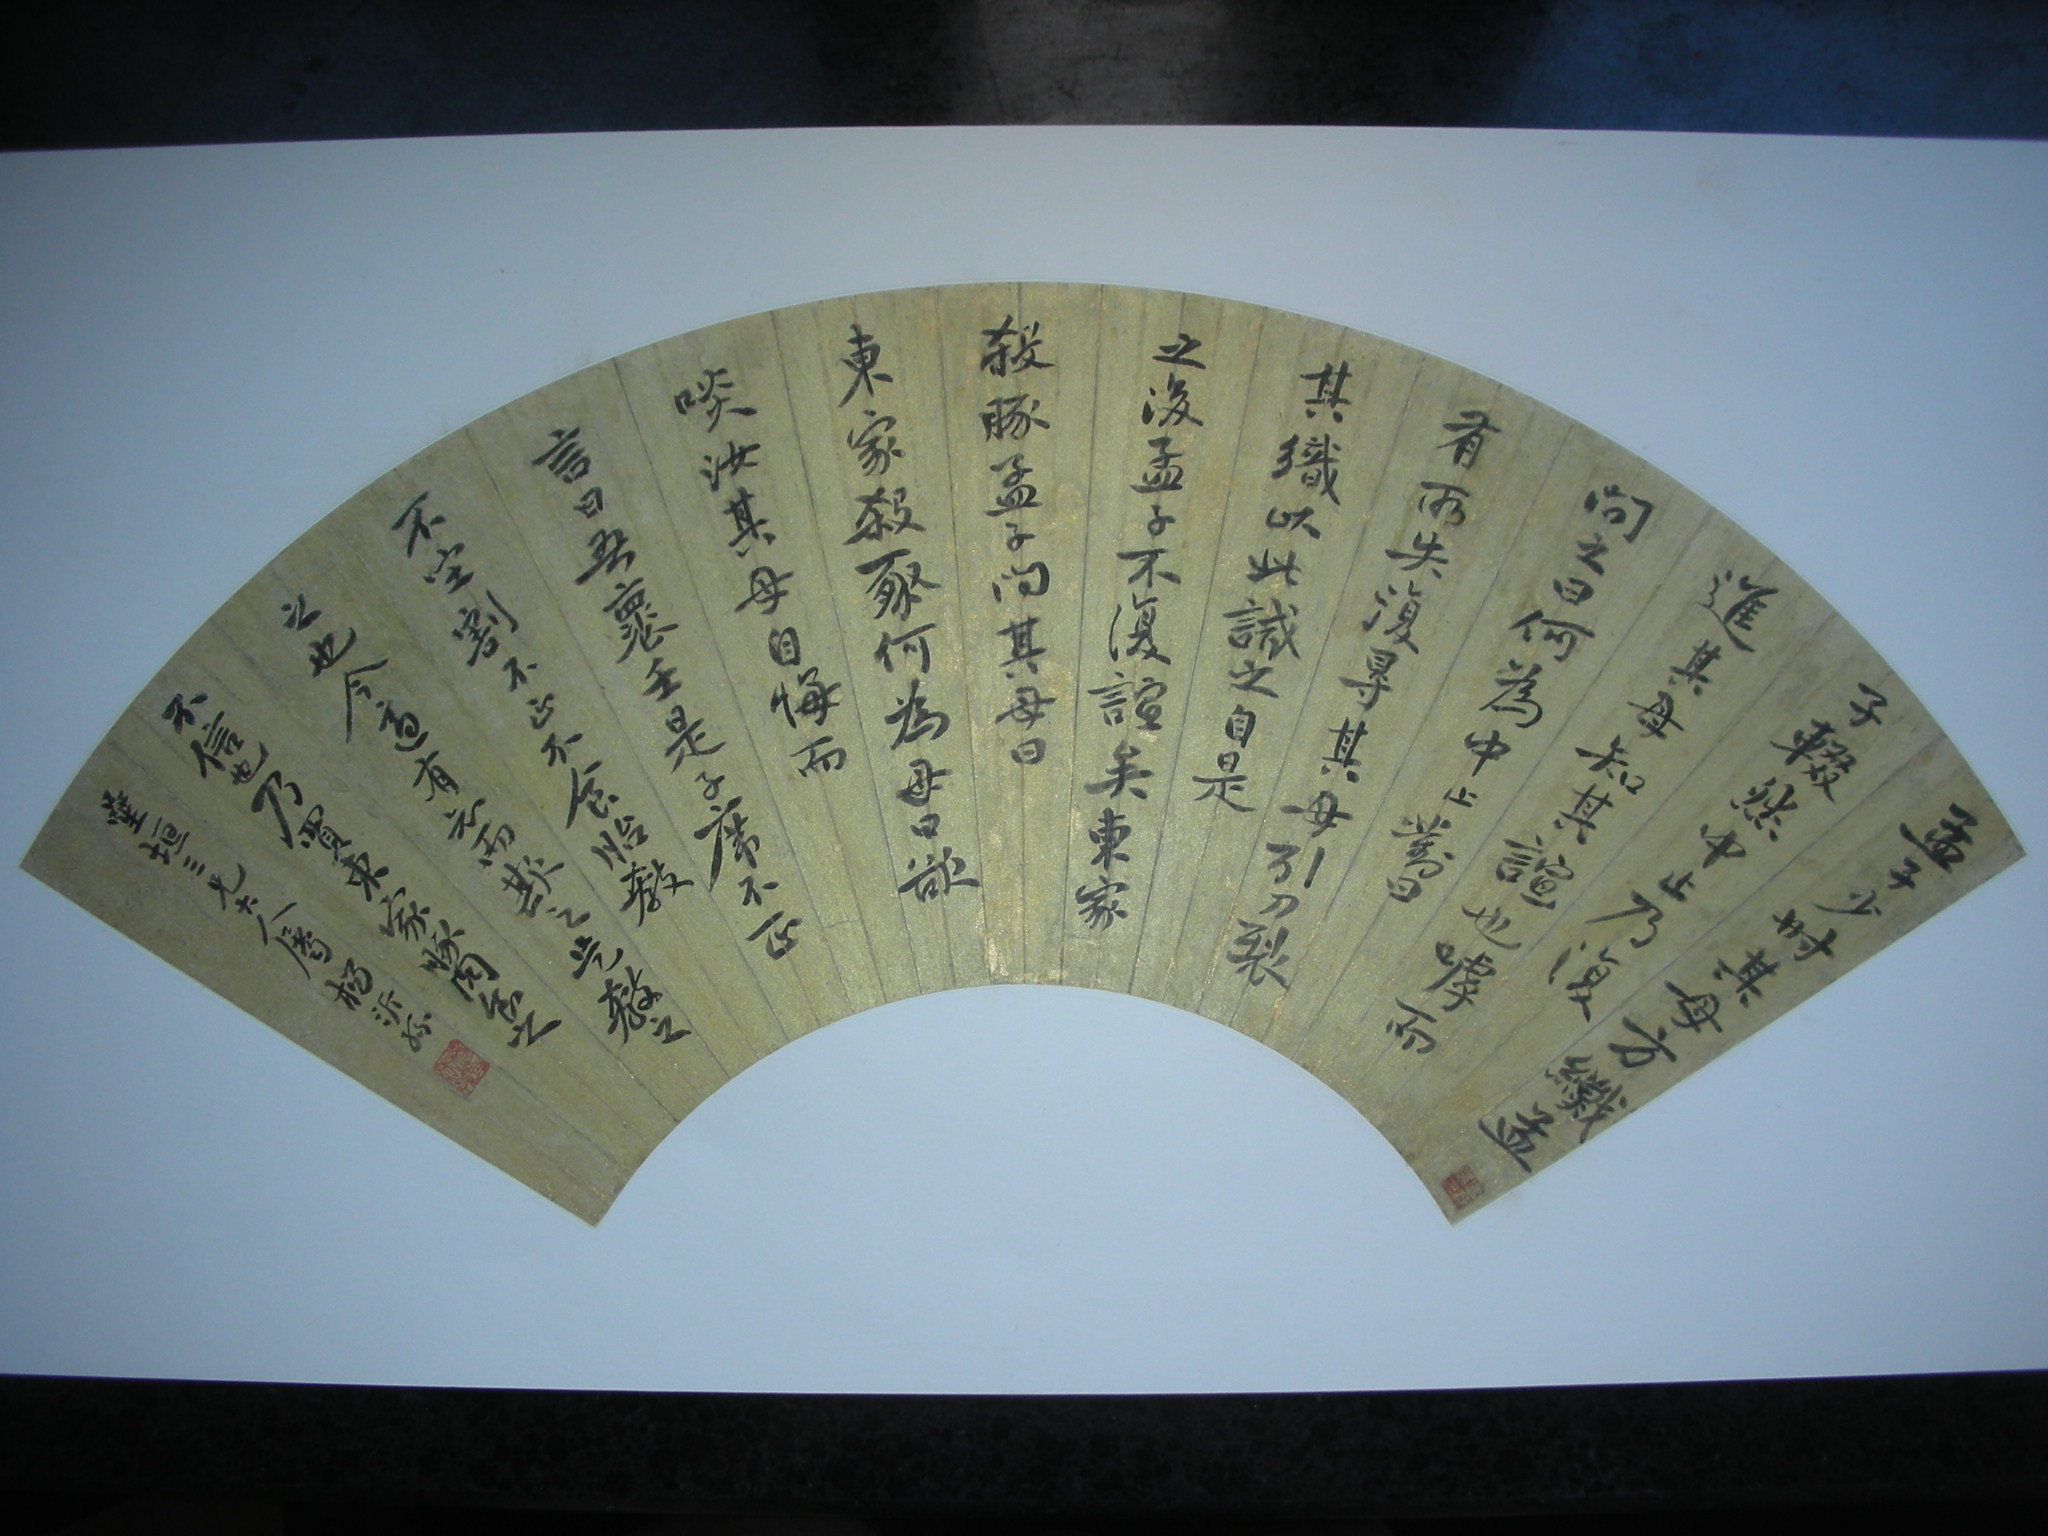 孟子少時其母方織孟
子輟然中止乃復
進其母知其諠也嘑而
問之曰何為中止對曰
有所失復得其母引刀裂
其織以此諴之自是
之後孟子不復諠矣東家
殺豚孟子問其母曰
東家殺豚何為母曰欲
啖汝其母自悔而
言曰吾褱壬是子席不正
不坐割不正不食胎教
之也今適有知而欺之是教之
不信也乃買東家豚肉食之
三兄大人屬楊沂孫